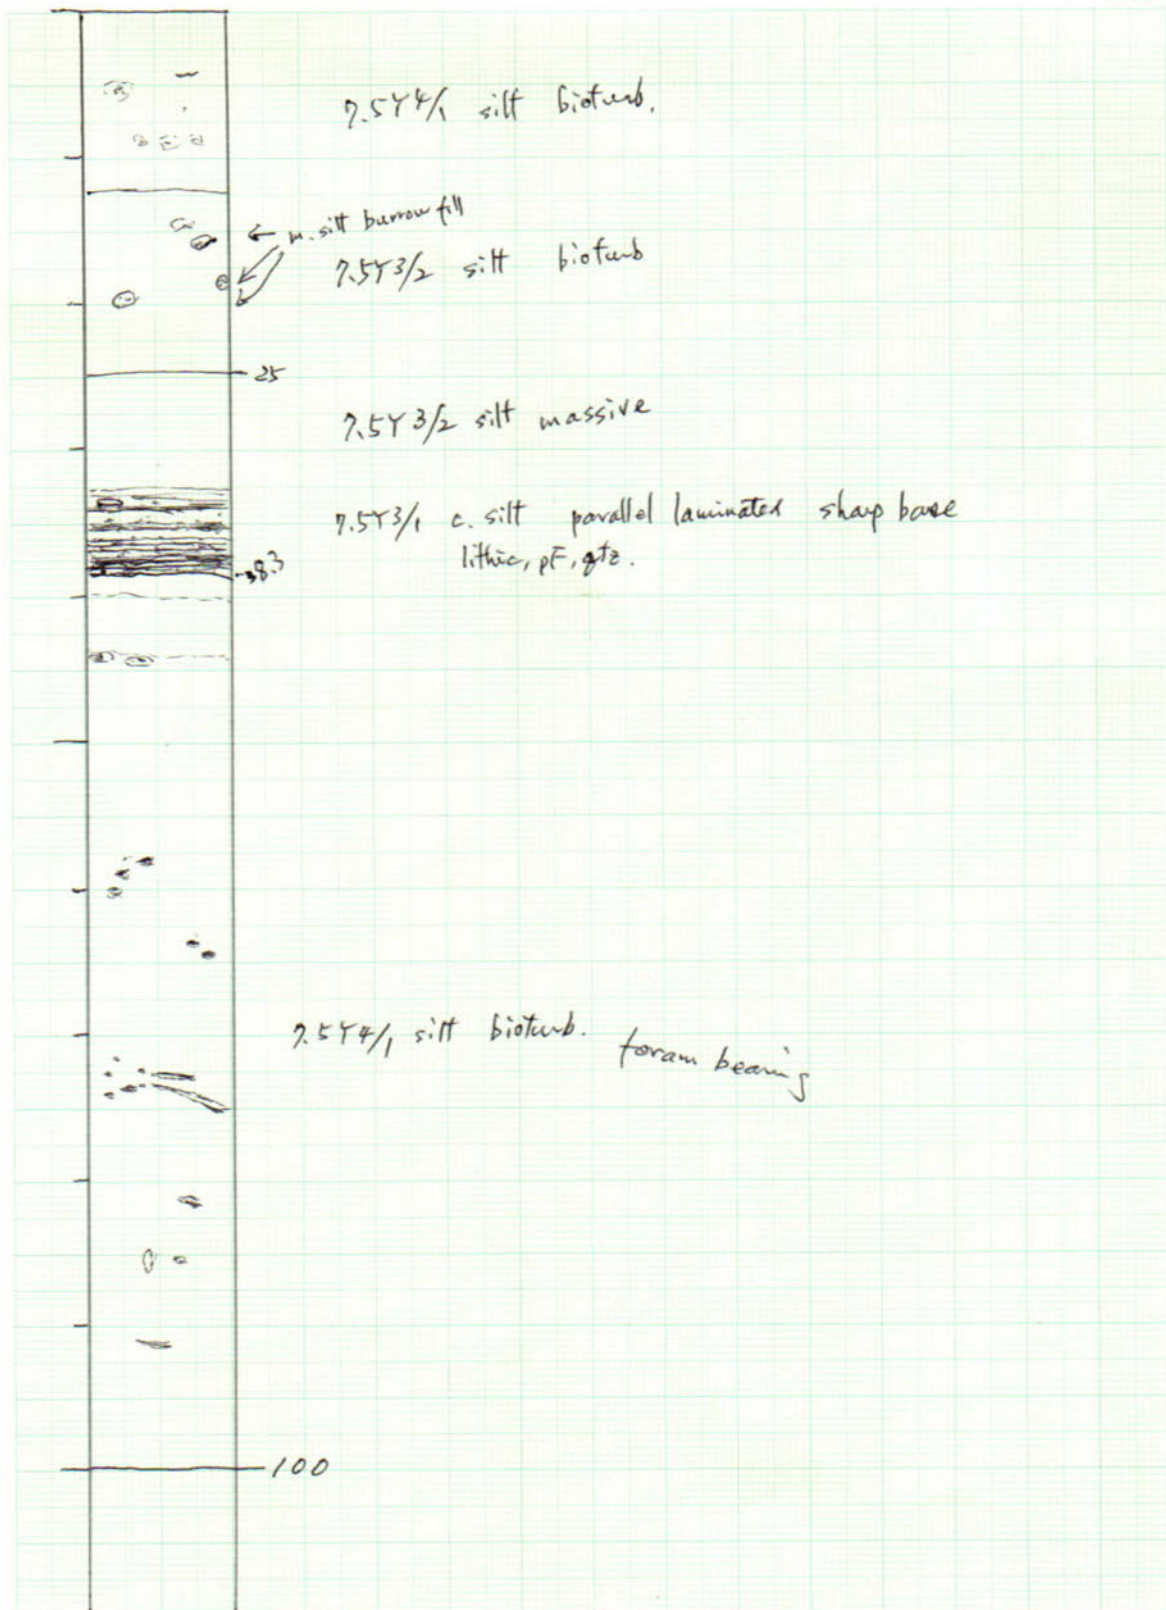 7.5Y4/1 silt bioturb.
m. silt burrow fill
7.5Y3/2 silt bioturb
25
7.5Y3/2 silt massive
7.5Y3/1 c. silt parallel laminated sharp base
lithic, pF, qtz.
38.3
7.5Y4/1 silt bioturb. foram bearing
100